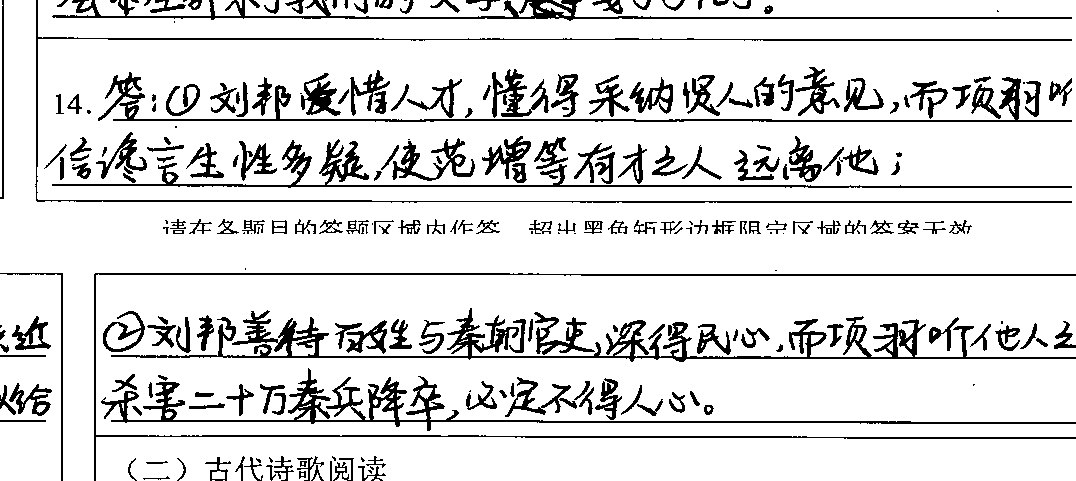 14. 答：①刘邦爱惜人才，懂得采纳贤人的意见，而项羽听
信谗言生性多疑，使范增等有才之人远离他；
请在各题目的答题区域内作答，超出黑色矩形边框限定区域的答案无效
②刘邦善待百姓与秦朝官吏，深得民心，而项羽听他人之
杀害二十万秦兵降卒，必定不得人心。
（二）古代诗歌阅读